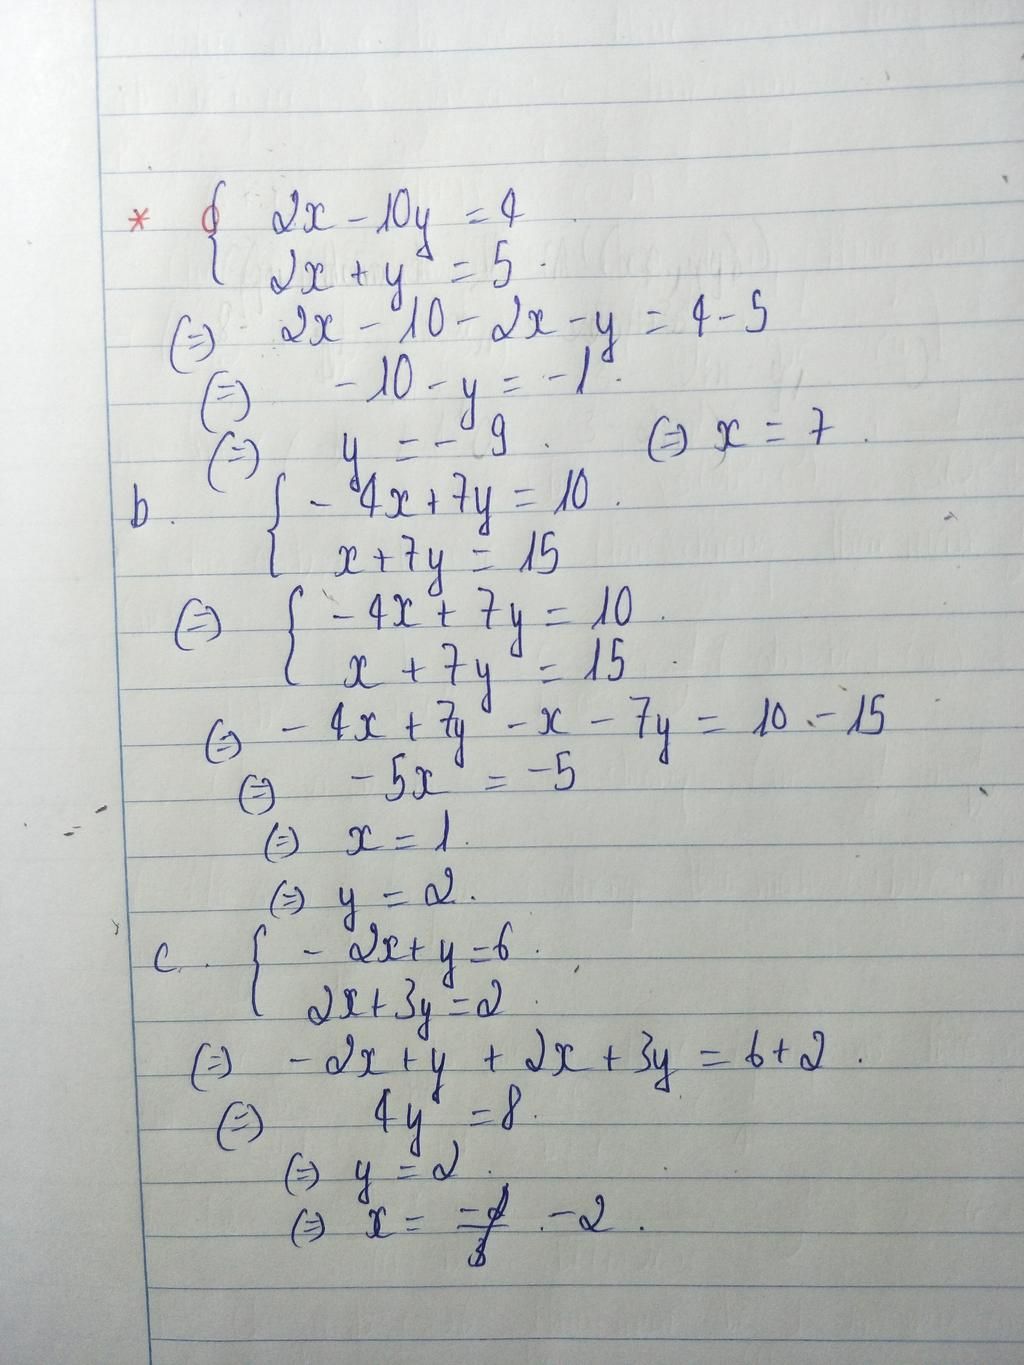 * { 2x - 10y = 4
2x + y = 5.
(=) 2x - 10 - 2x - y = 4 - 5
(=) - 10 - y = - 1.
(=) y = - 9. (=) x = 7.
b. { - 4x + 7y = 10.
x + 7y = 15
(=) { - 4x + 7y = 10.
x + 7y = 15.
(=) - 4x + 7y - x - 7y = 10 - 15
(=) - 5x = - 5
(=) x = 1.
(=) y = 2.
c. { - 2x + y = 6.
2x + 3y = 2.
(=) - 2x + y + 2x + 3y = 6 + 2.
(=) 4y = 8.
(=) y = 2.
(=) x = - 2.